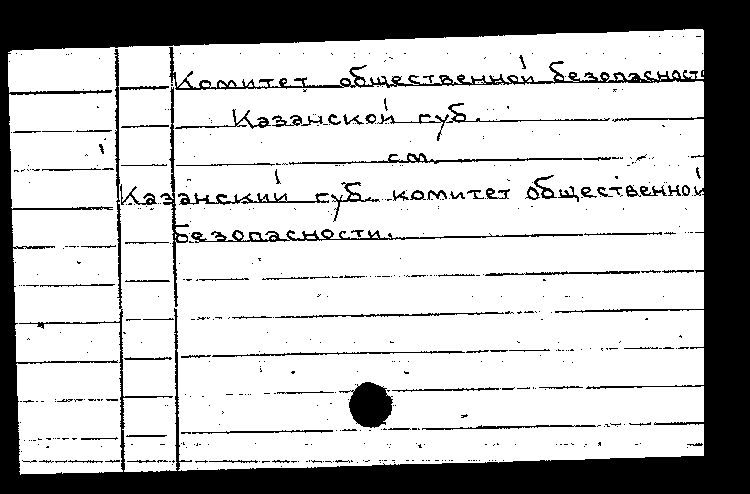 Комитет общественной безопасности
Казанской губ.
см.
Казанский губ. комитет общественной
безопасности.